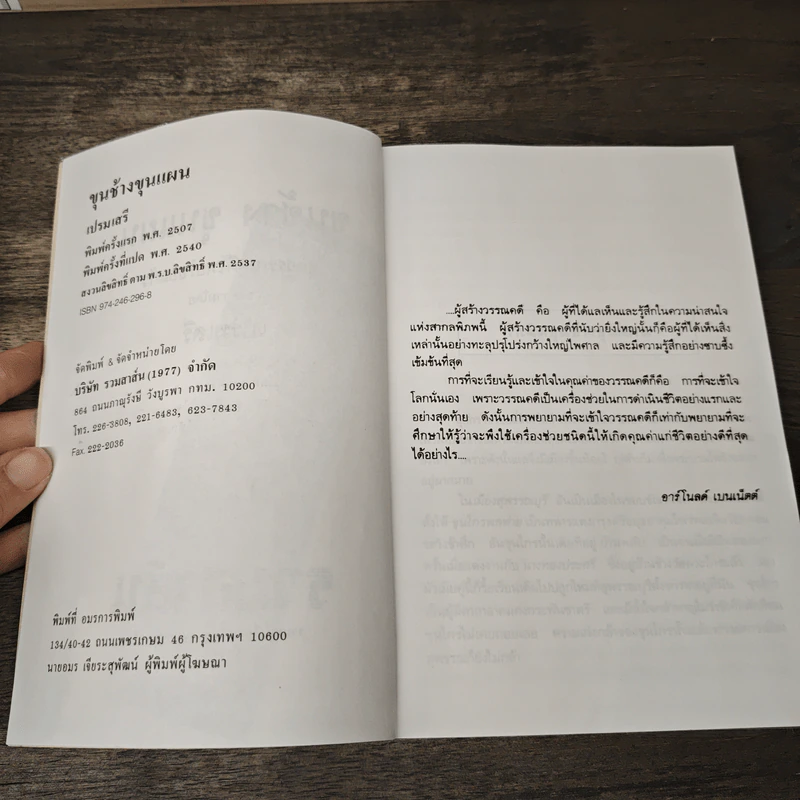 ขุนช้างขุนแผน
เปรมเสรี
พิมพ์ครั้งแรก พ.ศ. 2507
พิมพ์ครั้งที่แปด พ.ศ. 2540
สงวนลิขสิทธิ์ ตาม พ.ร.บ.ลิขสิทธิ์ พ.ศ. 2537
ISBN 974-246-296-8
จัดพิมพ์ & จัดจำหน่ายโดย
บริษัท รวมสาส์น (1977) จำกัด
864 ถนนภาณุรังษี วังบูรพา กทม. 10200
โทร. 226-3808, 221-6483, 623-7843
Fax. 222-2036
พิมพ์ที่ อมรการพิมพ์
134/40-42 ถนนเพชรเกษม 46 กรุงเทพฯ 10600
นายอมร เจียระสุพัฒน์ ผู้พิมพ์ผู้โฆษณา
....ผู้สร้างวรรณคดี คือ ผู้ที่ได้แลเห็นและรู้สึกในความน่าสนใจ
แห่งสากลพิภพนี้ ผู้สร้างวรรณคดีที่นับว่ายิ่งใหญ่นั้นก็คือผู้ที่ได้เห็นสิ่ง
เหล่านั้นอย่างทะลุปรุโปร่งกว้างใหญ่ไพศาล และมีความรู้สึกอย่างซาบซึ้ง
เข้มข้นที่สุด
การที่จะเรียนรู้และเข้าใจในคุณค่าของวรรณคดีก็คือ การที่จะเข้าใจ
โลกนั่นเอง เพราะวรรณคดีเป็นเครื่องช่วยในการดำเนินชีวิตอย่างแรกและ
อย่างสุดท้าย ดังนั้นการพยายามที่จะเข้าใจวรรณคดีก็เท่ากับพยายามที่จะ
ศึกษาให้รู้ว่าจะพึงใช้เครื่องช่วยชนิดนี้ให้เกิดคุณค่าแก่ชีวิตอย่างดีที่สุด
ได้อย่างไร....
อาร์โนลด์ เบนเน็ตต์